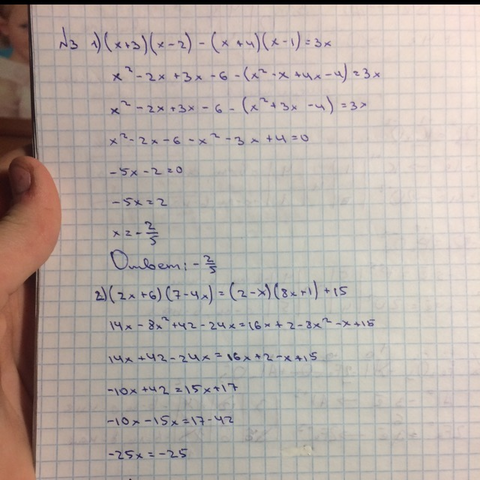 №3 1) (x+3)(x-2) - (x+4)(x-1)=3x
x²-2x+3x-6-(x²-x+4x-4)=3x
x²-2x+3x-6-(x²+3x-4)=3x
x²-2x-6-x²-3x+4=0
-5x-2=0
-5x=2
x=-2/5
Ответ: -2/5
2) (2x+6)(7-4x)=(2-x)(8x+1)+15
14x-8x²+42-24x=16x+2-8x²-x+15
14x+42-24x=16x+2-x+15
-10x+42=15x+17
-10x-15x=17-42
-25x=-25